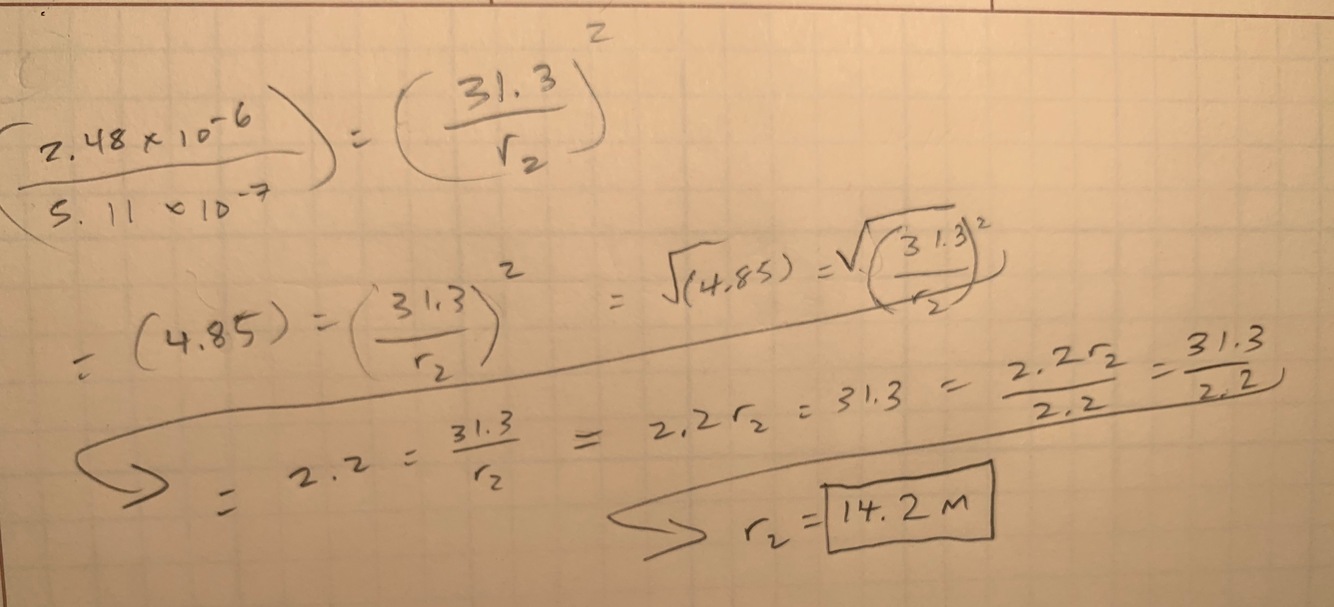 (2.48 × 10⁻⁶ / 5.11 × 10⁻⁷) = (31.3 / r₂)²
= (4.85) = (31.3 / r₂)² = √(4.85) = √(31.3 / r₂)²
= 2.2 = 31.3 / r₂ = 2.2 r₂ = 31.3 = 2.2 r₂ / 2.2 = 31.3 / 2.2
r₂ = 14.2 m